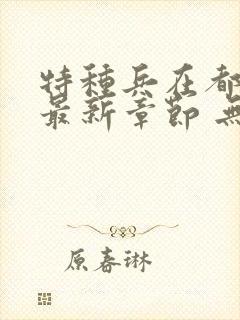 特種兵在都
最新章節 無
原春琳